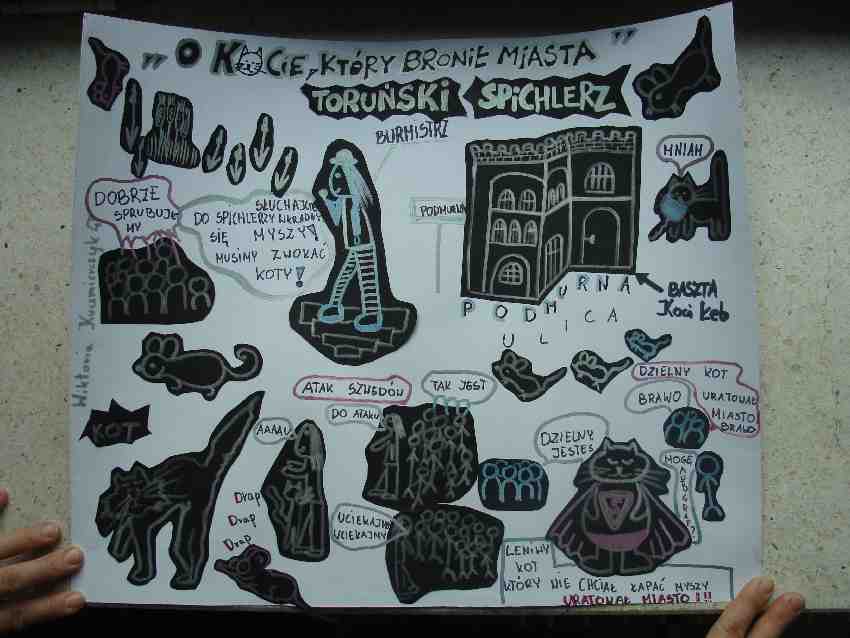 „O KOCIE, KTÓRY BRONIŁ MIASTA"
TORUŃSKI SPICHLERZ
BURMISTRZ
MNIAM
DOBRZE
SPRUBUJE
MY
SŁUCHAJCIE
DO SPICHLERZY WKRADAJĄ
SIĘ MYSZY!
MUSIMY ZWOŁAĆ
KOTY!
PODMURNA
BASZTA
Koci Łeb
PODMURNA
ULICA
Wiktoria
KOT
ATAK SZWEDÓW
TAK JEST
DO ATAKU
AAAAU
Drap
Drap
Drap
UCIEKAJMY
UCIEKAJMY
DZIELNY
JESTEŚ
DZIELNY KOT
URATOWAŁ
MIASTO
BRAWO
BRAWO
MOGĘ
AUTOGRAF?
LENIWY
KOT
KTÓRY NIE CHCIAŁ ŁAPAĆ MYSZY
URATOWAŁ MIASTO!!!